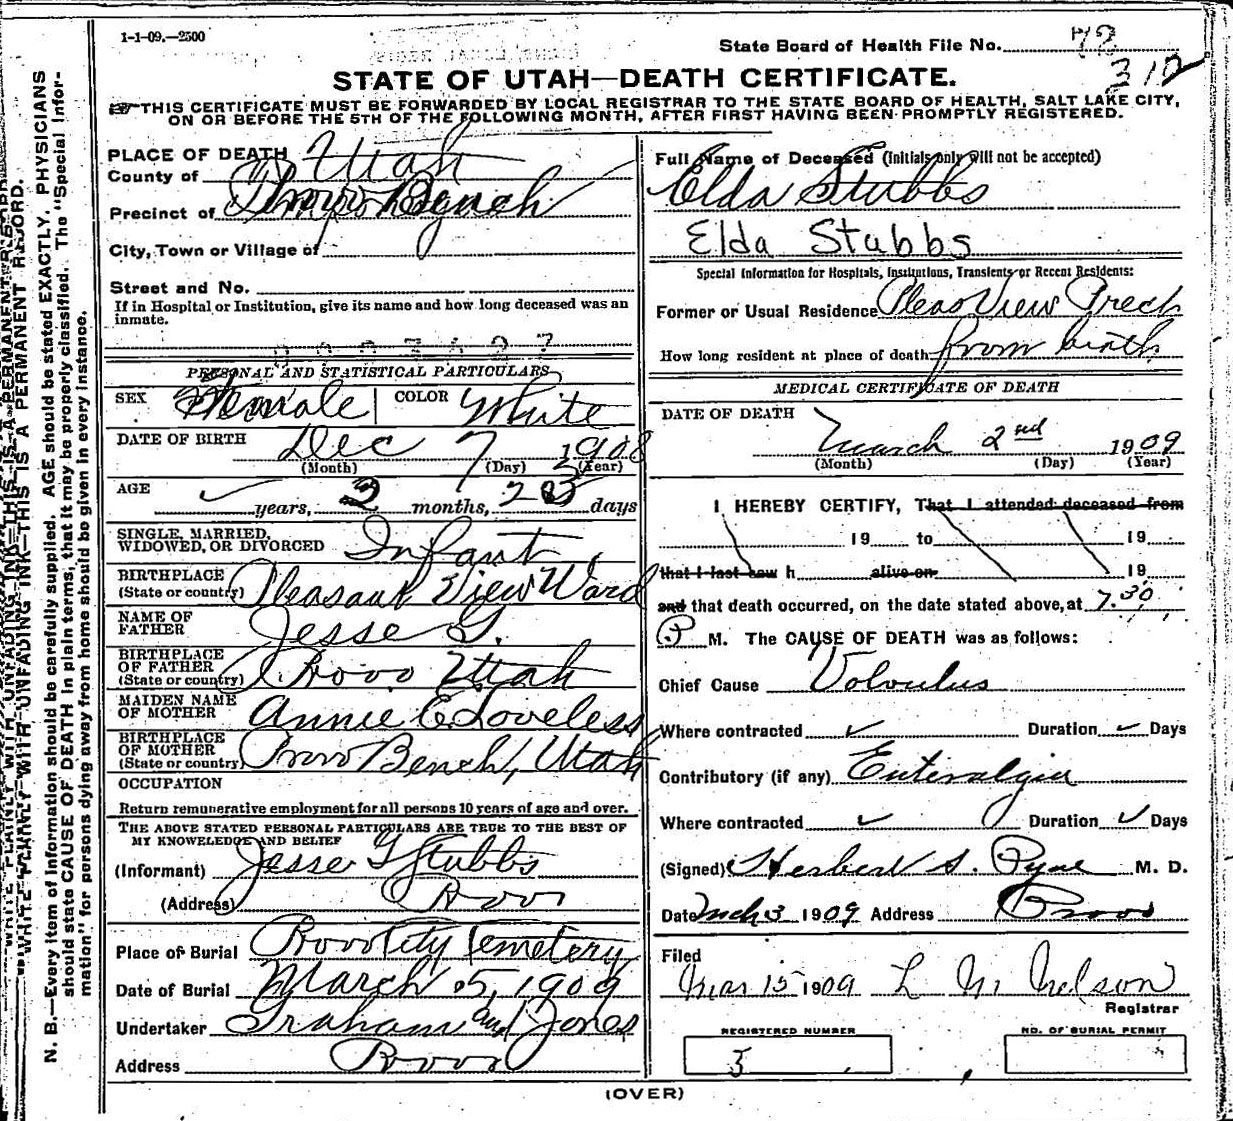 1-1-09.—2500
State Board of Health File No. 72
310
STATE OF UTAH—DEATH CERTIFICATE.
THIS CERTIFICATE MUST BE FORWARDED BY LOCAL REGISTRAR TO THE STATE BOARD OF HEALTH, SALT LAKE CITY,
ON OR BEFORE THE 5TH OF THE FOLLOWING MONTH, AFTER FIRST HAVING BEEN PROMPTLY REGISTERED.
PLACE OF DEATH
County of Utah
Precinct of Provo Bench
City, Town or Village of
Street and No.
If in Hospital or Institution, give its name and how long deceased was an
inmate.
PERSONAL AND STATISTICAL PARTICULARS
SEX Female COLOR White
DATE OF BIRTH Dec 7 1908
(Month) (Day) (Year)
AGE ✓ years, 2 months, 23 days
SINGLE, MARRIED,
WIDOWED, OR DIVORCED Infant
BIRTHPLACE
(State or country) Pleasant View Ward
NAME OF
FATHER Jesse G.
BIRTHPLACE
OF FATHER
(State or country) Provo Utah
MAIDEN NAME
OF MOTHER Annie E Loveless
BIRTHPLACE
OF MOTHER
(State or country) Provo Bench, Utah
OCCUPATION
Return remunerative employment for all persons 10 years of age and over.
THE ABOVE STATED PERSONAL PARTICULARS ARE TRUE TO THE BEST OF
MY KNOWELEDGE AND BELIEF
(Informant) Jesse G Stubbs
(Address) Provo
Place of Burial Provo City Cemetery
Date of Burial March 5, 1909
Undertaker Graham and Jones
Address Provo
Full Name of Deceased (Initials only will not be accepted)
Elda Stubbs
Elda Stubbs
Special Information for Hospitals, Institutions, Transients or Recent Residents:
Former or Usual Residence Pleas View Prect
How long resident at place of death from birth
MEDICAL CERTIFICATE OF DEATH
DATE OF DEATH March 2nd 1909
(Month) (Day) (Year)
I HEREBY CERTIFY, That I attended deceased from
19 to 19
that I last saw h alive on 19
and that death occurred, on the date stated above, at 7.30
P M. The CAUSE OF DEATH was as follows:
Chief Cause Volvulus
Where contracted ✓ Duration ✓ Days
Contributory (if any) Enteralgia
Where contracted ✓ Duration ✓ Days
(Signed) Herbert S. Pyne M. D.
Date Mch 3 1909 Address Provo
Filed
Mar 15 1909 L N. Nelson
Registrar
REGISTERED NUMBER NO. OF BURIAL PERMIT
5
(OVER)
N. B.—Every item of information should be carefully supplied. AGE should be stated EXACTLY. PHYSICIANS
should state CAUSE OF DEATH in plain terms, that it may be properly classified. The "Special Infor-
mation" for persons dying away from home should be given in every instance.
WRITE PLAINLY WITH UNFADING INK—THIS IS A PERMANENT RECORD.